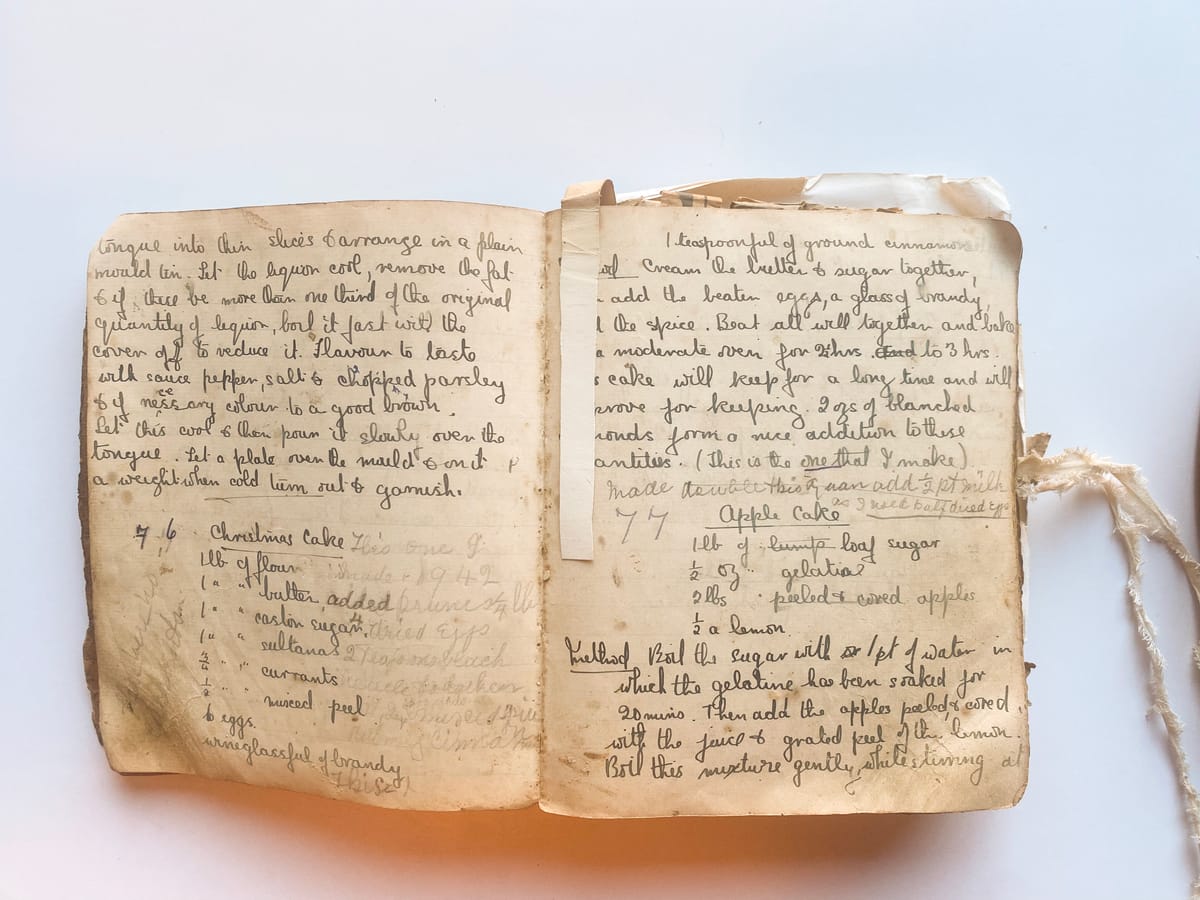 tongue into thin slices & arrange in a plain
mould tin. Let the liquor cool, remove the fat
& if there be more than one third of the original
quantity of liquor, boil it fast with the
cover off to reduce it. Flavour to taste
with sauce pepper, salt & chopped parsley
& if necessary colour to a good brown.
Let this cool & then pour it slowly over the
tongue. Let a plate over the mould & on it
a weight when cold turn out & garnish.
76 Christmas Cake This one I
made 1942
1lb of flour
1 " " butter, added prunes 1/4 lb
1 " " castor sugar, 4 dried Eggs
1 " " sultanas
3/4 " " currants
1/2 " " minced peel.
6 eggs.
wineglassful of brandy
1 teaspoonful of ground cinnamon
Cream the butter & sugar together,
add the beaten eggs, a glass of brandy,
the spice. Beat all well together and bake
a moderate oven for 2½ hrs. and to 3 hrs.
cake will keep for a long time and will
for keeping. 2 ozs of blanched
form a nice addition to these
(This is the one that I make)
made double this quan add ½ pt milk
as I used half dried Eggs
77 Apple Cake
1lb of lump loaf sugar
½ oz " gelatine
2lbs " peeled & cored apples
½ a lemon.
Method Boil the sugar with or 1pt of water in
which the gelatine has been soaked for
20 mins. Then add the apples peeled & cored,
with the juice & grated peel of the lemon.
Boil this mixture gently, while stirring at